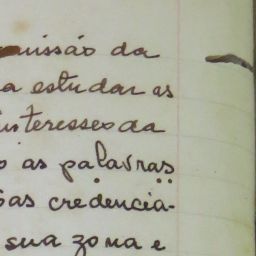 missão da
a estudar as
interesses da
o as palavras
sas credencia-
sua zona e